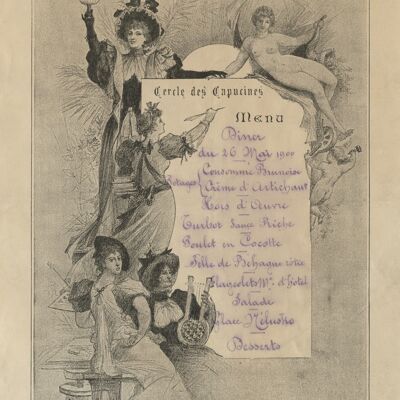 Cercle des Capucines
Menu
Diner
du 26 Mai 1900
Potages { Consommé Brunoise
Crème d'Artichaut
Hors d'Œuvre
Turbot Sauce Riche
Poulet en Cocotte
Selle de Béhague rôtie
Flageolets Me. d'hotel
Salade
Glace Nélusko
Desserts